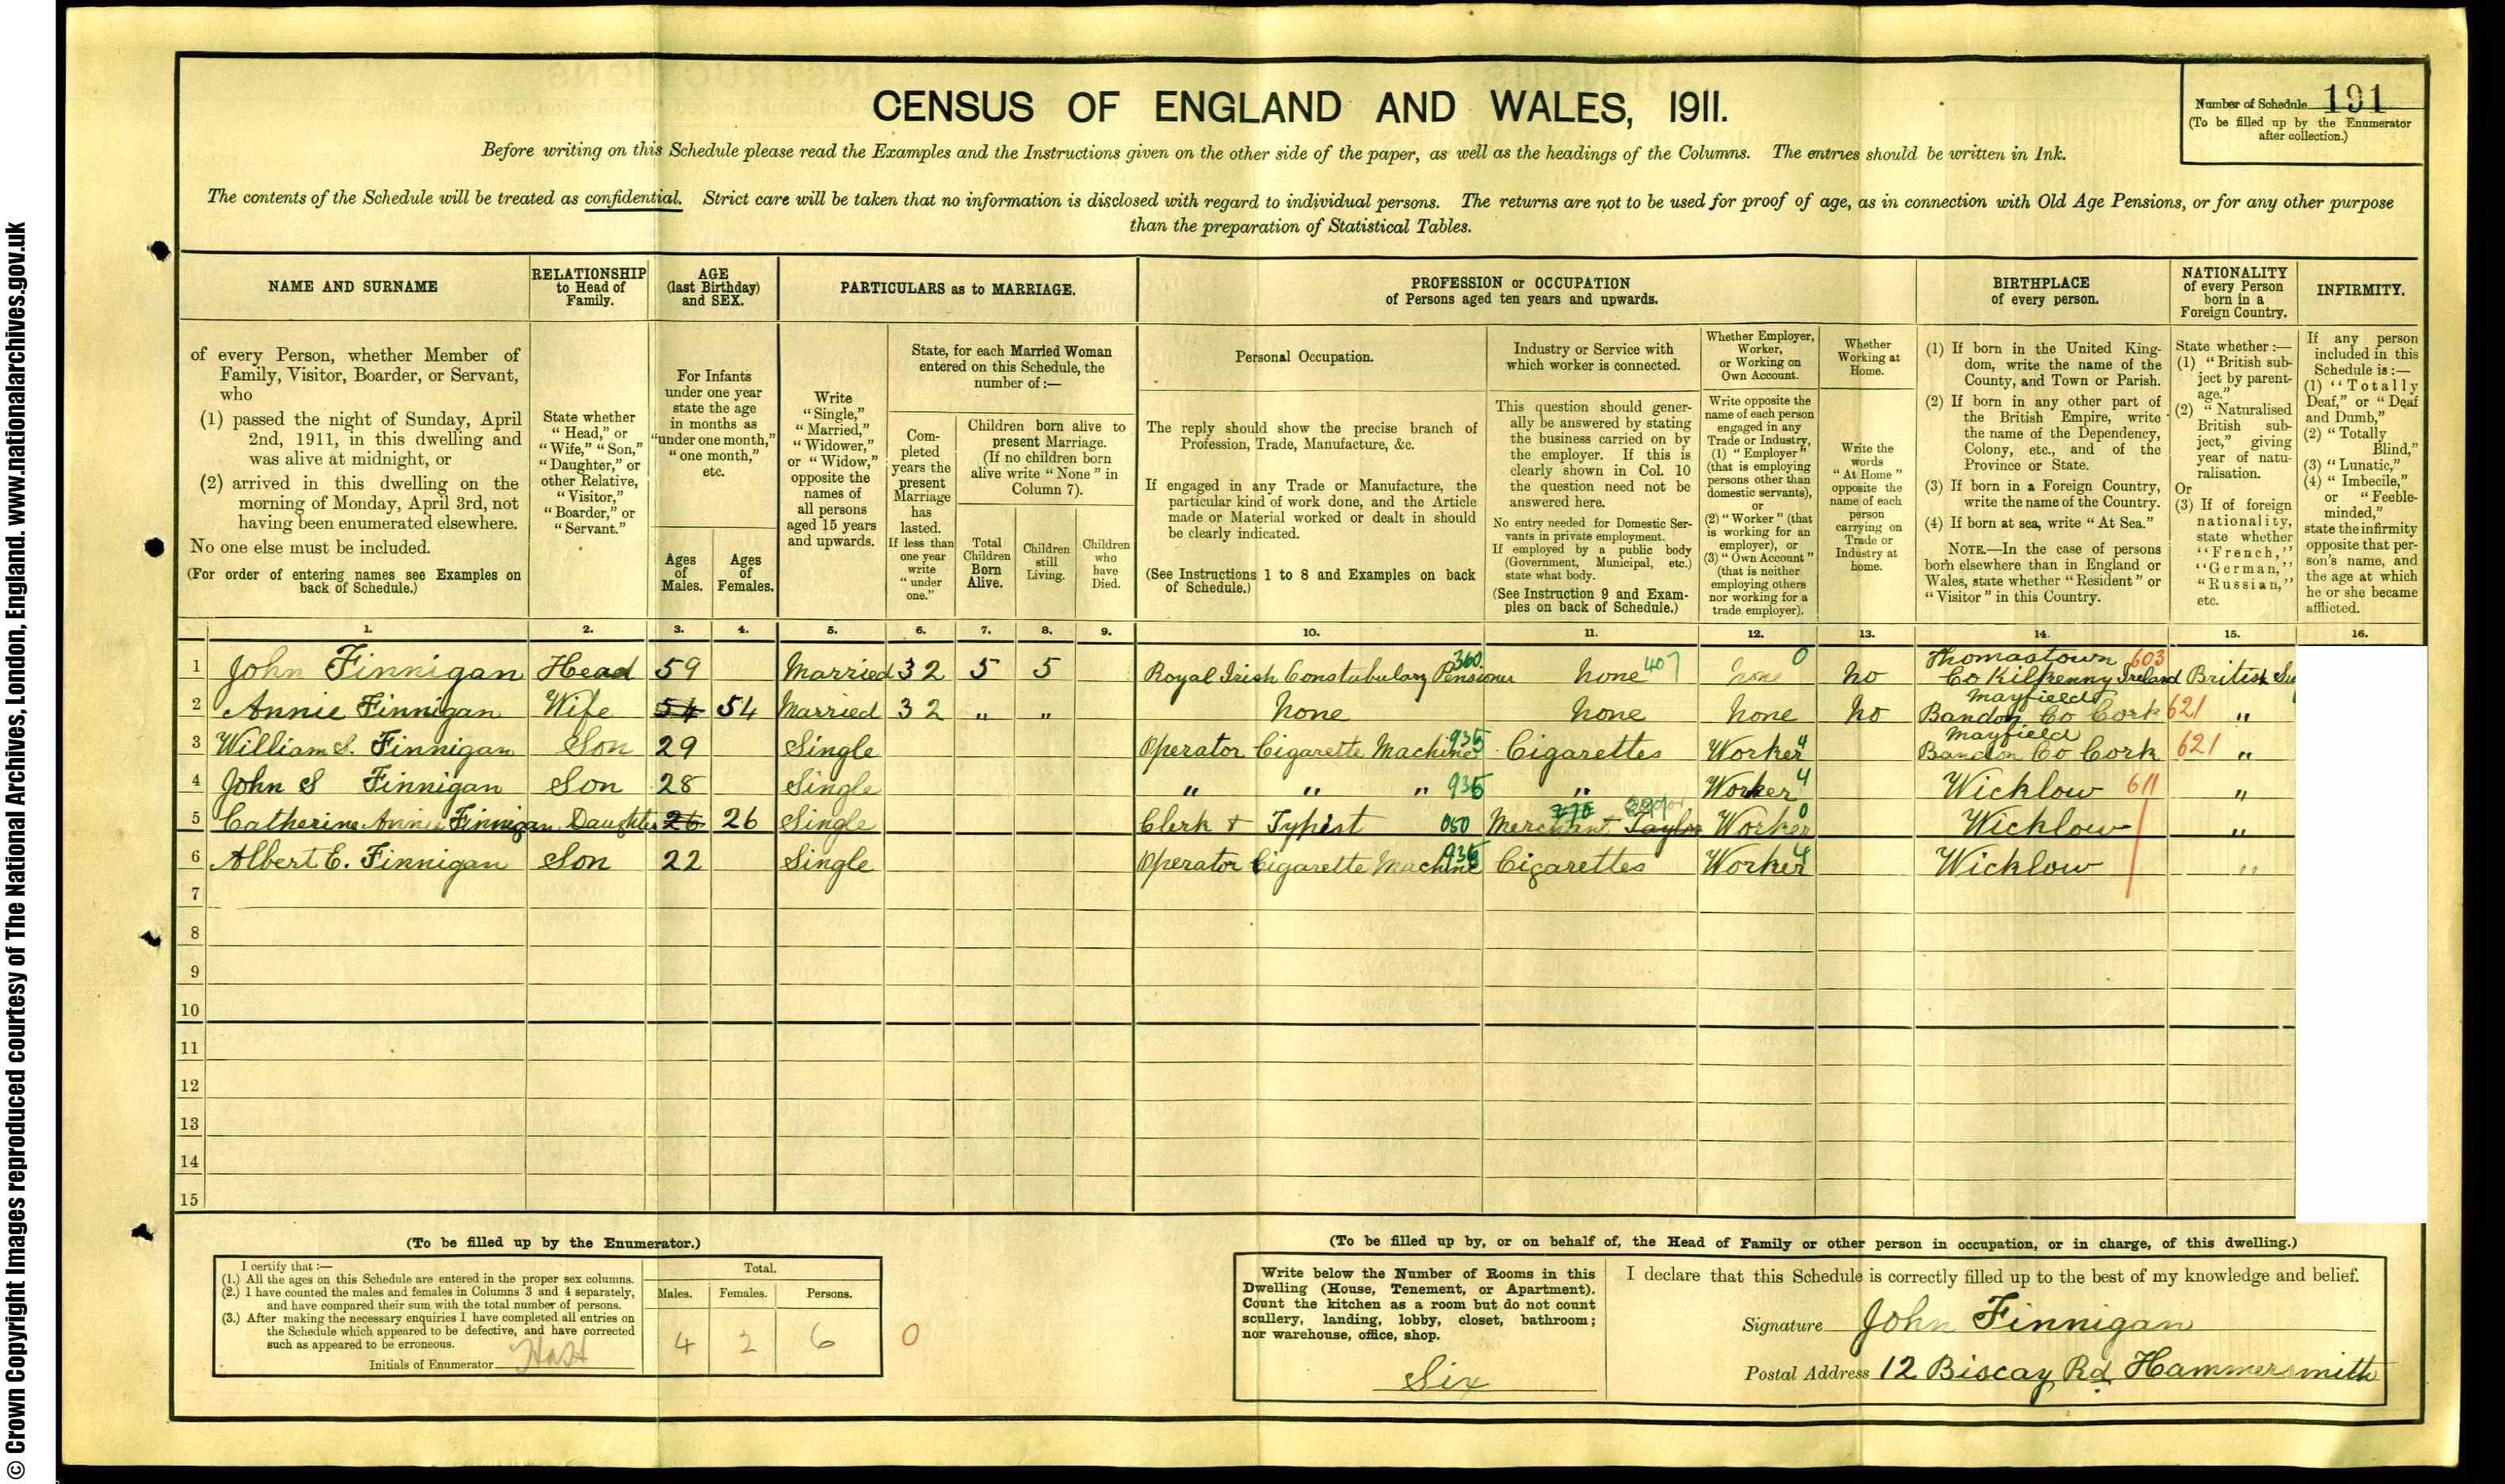 © Crown Copyright Images reproduced courtesy of The National Archives, London, England. www.nationalarchives.gov.uk
CENSUS OF ENGLAND AND WALES, 1911.
Number of Schedule 191
(To be filled up by the Enumerator
after collection.)
Before writing on this Schedule please read the Examples and the Instructions given on the other side of the paper, as well as the headings of the Columns. The entries should be written in Ink.
The contents of the Schedule will be treated as confidential. Strict care will be taken that no information is disclosed with regard to individual persons. The returns are not to be used for proof of age, as in connection with Old Age Pensions, or for any other purpose
than the preparation of Statistical Tables.
NAME AND SURNAME
of every Person, whether Member of
Family, Visitor, Boarder, or Servant,
who
(1) passed the night of Sunday, April
2nd, 1911, in this dwelling and
was alive at midnight, or
(2) arrived in this dwelling on the
morning of Monday, April 3rd, not
having been enumerated elsewhere.
No one else must be included.
(For order of entering names see Examples on
back of Schedule.)
RELATIONSHIP
to Head of
Family.
State whether
"Head," or
"Wife," "Son,"
"Daughter," or
other Relative,
"Visitor,"
"Boarder," or
"Servant."
AGE
(last Birthday)
and SEX.
For Infants
under one year
state the age
in months as
"under one month,"
"one month,"
etc.
Ages
of
Males.
Ages
of
Females.
PARTICULARS as to MARRIAGE.
Write
"Single,"
"Married,"
"Widower,"
or "Widow,"
opposite the
names of
all persons
aged 15 years
and upwards.
State, for each Married Woman
entered on this Schedule, the
number of:—
Com-
pleted
years the
present
Marriage
has
lasted.
If less than
one year
write
"under
one."
Children born alive to
present Marriage.
(If no children born
alive write "None" in
Column 7).
Total
Children
Born
Alive.
Children
still
Living.
Children
who
have
Died.
PROFESSION or OCCUPATION
of Persons aged ten years and upwards.
Personal Occupation.
The reply should show the precise branch of
Profession, Trade, Manufacture, &c.
If engaged in any Trade or Manufacture, the
particular kind of work done, and the Article
made or Material worked or dealt in should
be clearly indicated.
(See Instructions 1 to 8 and Examples on back
of Schedule.)
Industry or Service with
which worker is connected.
This question should gener-
ally be answered by stating
the business carried on by
the employer. If this is
clearly shown in Col. 10
the question need not be
answered here.
No entry needed for Domestic Ser-
vants in private employment.
If employed by a public body
(Government, Municipal, etc.)
state what body.
(See Instruction 9 and Exam-
ples on back of Schedule.)
Whether Employer,
Worker,
or Working on
Own Account.
Write opposite the
name of each person
engaged in any
Trade or Industry,
(1) "Employer"
(that is employing
persons other than
domestic servants),
or
(2) "Worker" (that
is working for an
employer), or
(3) "Own Account"
(that is neither
employing others
nor working for a
trade employer).
Whether
Working at
Home.
Write the
words
"At Home"
opposite the
name of each
person
carrying on
Trade or
Industry at
home.
BIRTHPLACE
of every person.
(1) If born in the United King-
dom, write the name of the
County, and Town or Parish.
(2) If born in any other part of
the British Empire, write
the name of the Dependency,
Colony, etc., and of the
Province or State.
(3) If born in a Foreign Country,
write the name of the Country.
(4) If born at sea, write "At Sea."
NOTE.—In the case of persons
born elsewhere than in England or
Wales, state whether "Resident" or
"Visitor" in this Country.
NATIONALITY
of every Person
born in a
Foreign Country.
State whether:—
(1) "British sub-
ject by parent-
age."
(2) "Naturalised
British sub-
ject," giving
year of natu-
ralisation.
Or
(3) If of foreign
nationality,
state whether
"French,"
"German,"
"Russian,"
etc.
INFIRMITY.
If any person
included in this
Schedule is:—
(1) "Totally
Deaf," or "Deaf
and Dumb,"
(2) "Totally
Blind,"
(3) "Lunatic,"
(4) "Imbecile,"
or "Feeble-
minded,"
state the infirmity
opposite that per-
son's name, and
the age at which
he or she became
afflicted.
1. 2. 3. 4. 5. 6. 7. 8. 9. 10. 11. 12. 13. 14. 15. 16.
Thomastown 603
1 John Finnigan Head 59 Married 32 5 5 Royal Irish Constabulary Pensioner 360 None 407 None 0 No Co Kilkenny Ireland British Su
Mayfield
2 Annie Finnigan Wife 54 54 Married 32 " " None None None No Bandon Co Cork 621 "
Mayfield
3 William S. Finnigan Son 29 Single Operator Cigarette Machine 935 Cigarettes Worker 4 Bandon Co Cork 621 "
4 John S Finnigan Son 28 Single " " " 935 " Worker 4 Wicklow 611 "
5 Catherine Annie Finnigan Daughter 26 26 Single Clerk & Typist 050 Merchant Taylor Worker 0 Wicklow "
6 Albert E. Finnigan Son 22 Single Operator Cigarette Machine 935 Cigarettes Worker 4 Wicklow "
7
8
9
10
11
12
13
14
15
(To be filled up by the Enumerator.)
I certify that:—
(1.) All the ages on this Schedule are entered in the proper sex columns.
(2.) I have counted the males and females in Columns 3 and 4 separately,
and have compared their sum with the total number of persons.
(3.) After making the necessary enquiries I have completed all entries on
the Schedule which appeared to be defective, and have corrected
such as appeared to be erroneous.
Initials of Enumerator
Total.
Males. Females. Persons.
4 2 6 0
(To be filled up by, or on behalf of, the Head of Family or other person in occupation, or in charge, of this dwelling.)
Write below the Number of Rooms in this
Dwelling (House, Tenement, or Apartment).
Count the kitchen as a room but do not count
scullery, landing, lobby, closet, bathroom;
nor warehouse, office, shop.
Six
I declare that this Schedule is correctly filled up to the best of my knowledge and belief.
Signature John Finnigan
Postal Address 12 Biscay Rd Hammersmith